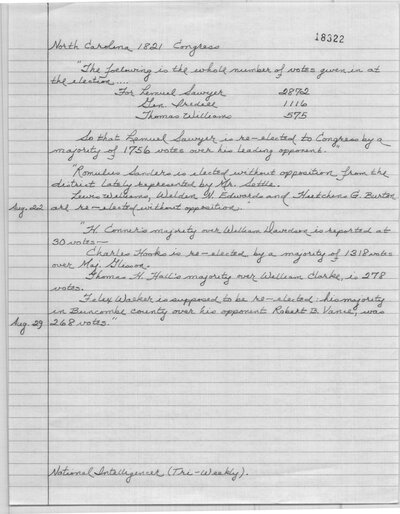 18322
North Carolina 1821 Congress
"The following is the whole number of votes given in at
the election....
For Lemuel Sawyer 2872
Gen. Iredell 1116
Thomas Williams 575
So that Lemuel Sawyer is re-elected to Congress by a
majority of 1756 votes over his leading opponent."
"Romulus Sanders is elected without opposition from the
district lately represented by Mr. Settle.
Lewis Williams, Weldon N. Edwards and Hutchins G. Burton
Aug. 22 are re-elected without opposition."
"H. Conner's majority over William Davidson is reported at
30 votes—
Charles Hooks is re-elected by a majority of 1318 votes
over Maj. Glisson.
Thomas H. Hall's majority over William Clarke, is 278
votes.
Felix Walker is supposed to be re-elected: his majority
in Buncombe county over his opponent Robert B. Vance, was
Aug. 29 268 votes."
National Intelligencer (Tri-Weekly).